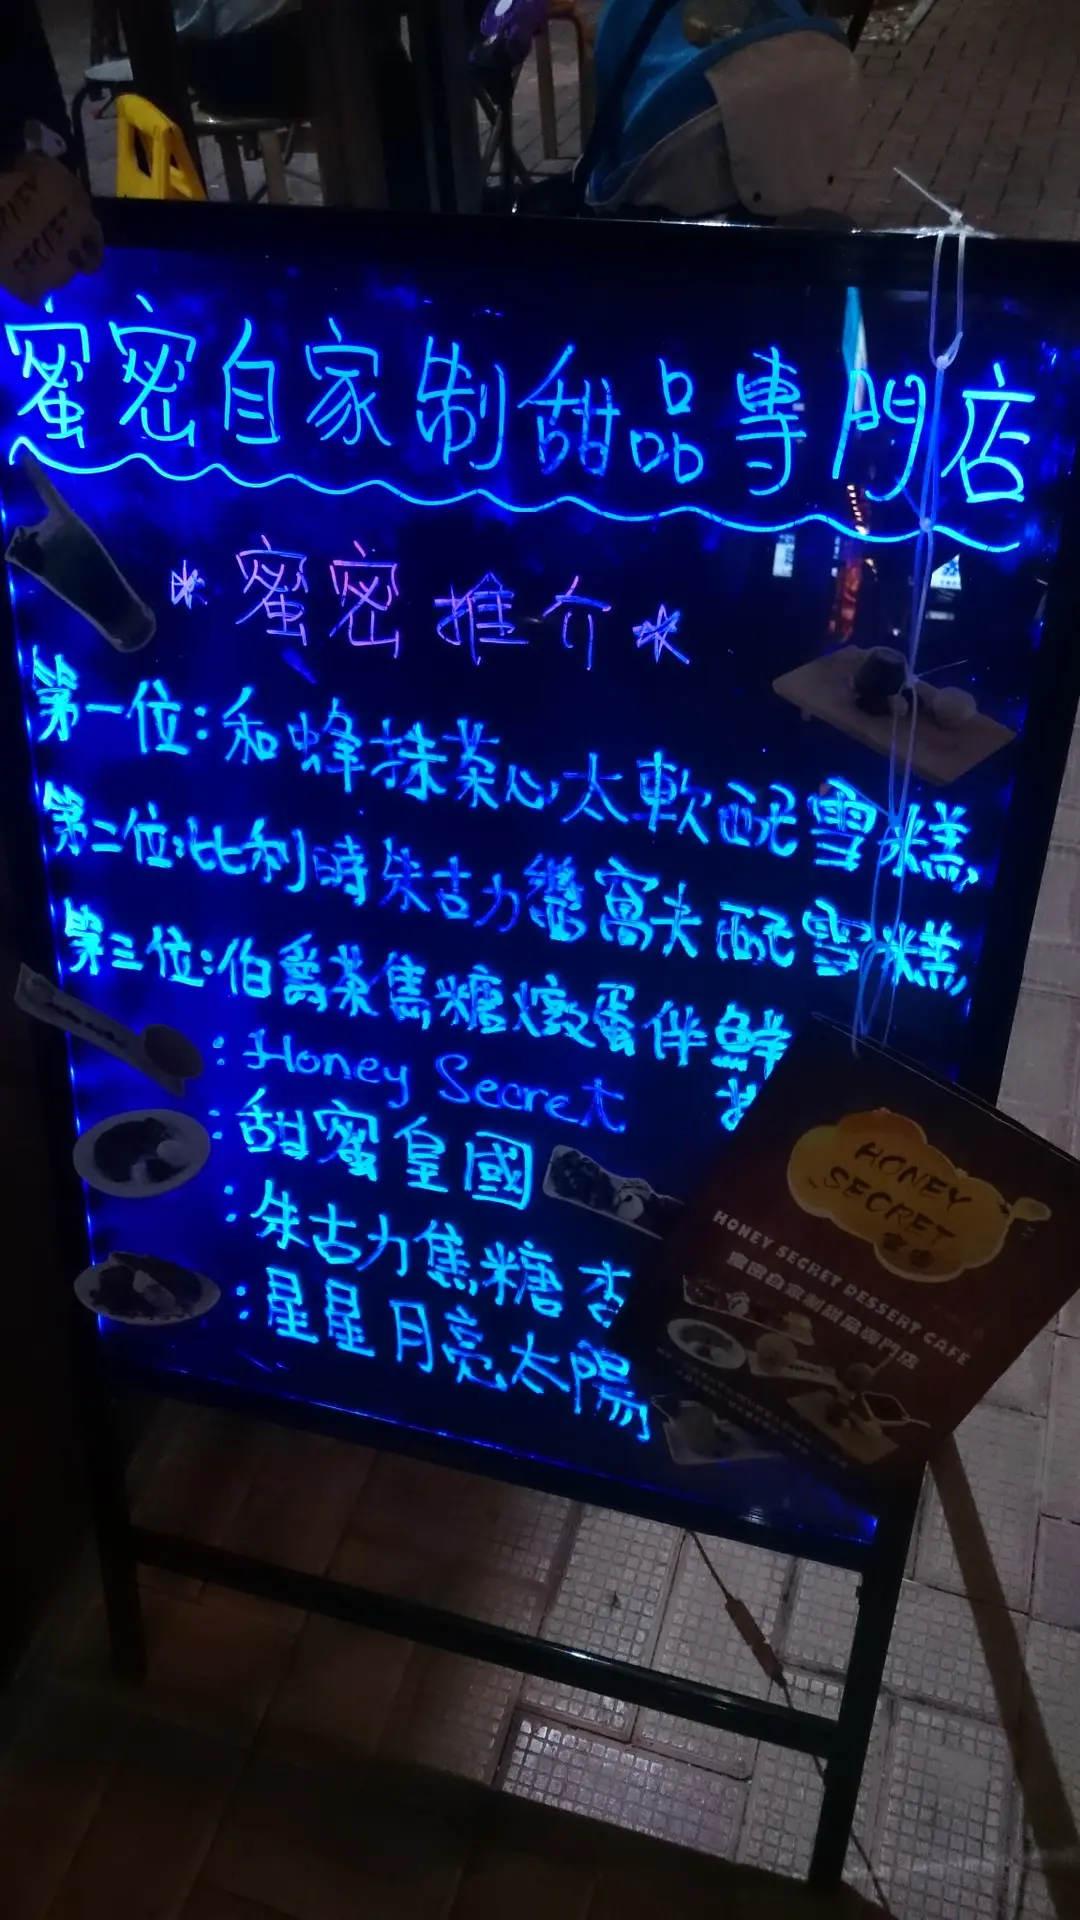 蜜密自家制甜品專門店
*蜜密推介*
第一位:和蜂抹茶心太軟配雪糕
第二位:比利時朱古力醬窩夫配雪糕
第三位:伯爵茶焦糖燉蛋伴鮮
:Honey Secret
:甜蜜皇國
:朱古力焦糖杏
:星星月亮太陽
HONEY
SECRET
蜜密
HONEY SECRET DESSERT CAFE
蜜密自家制甜品專門店